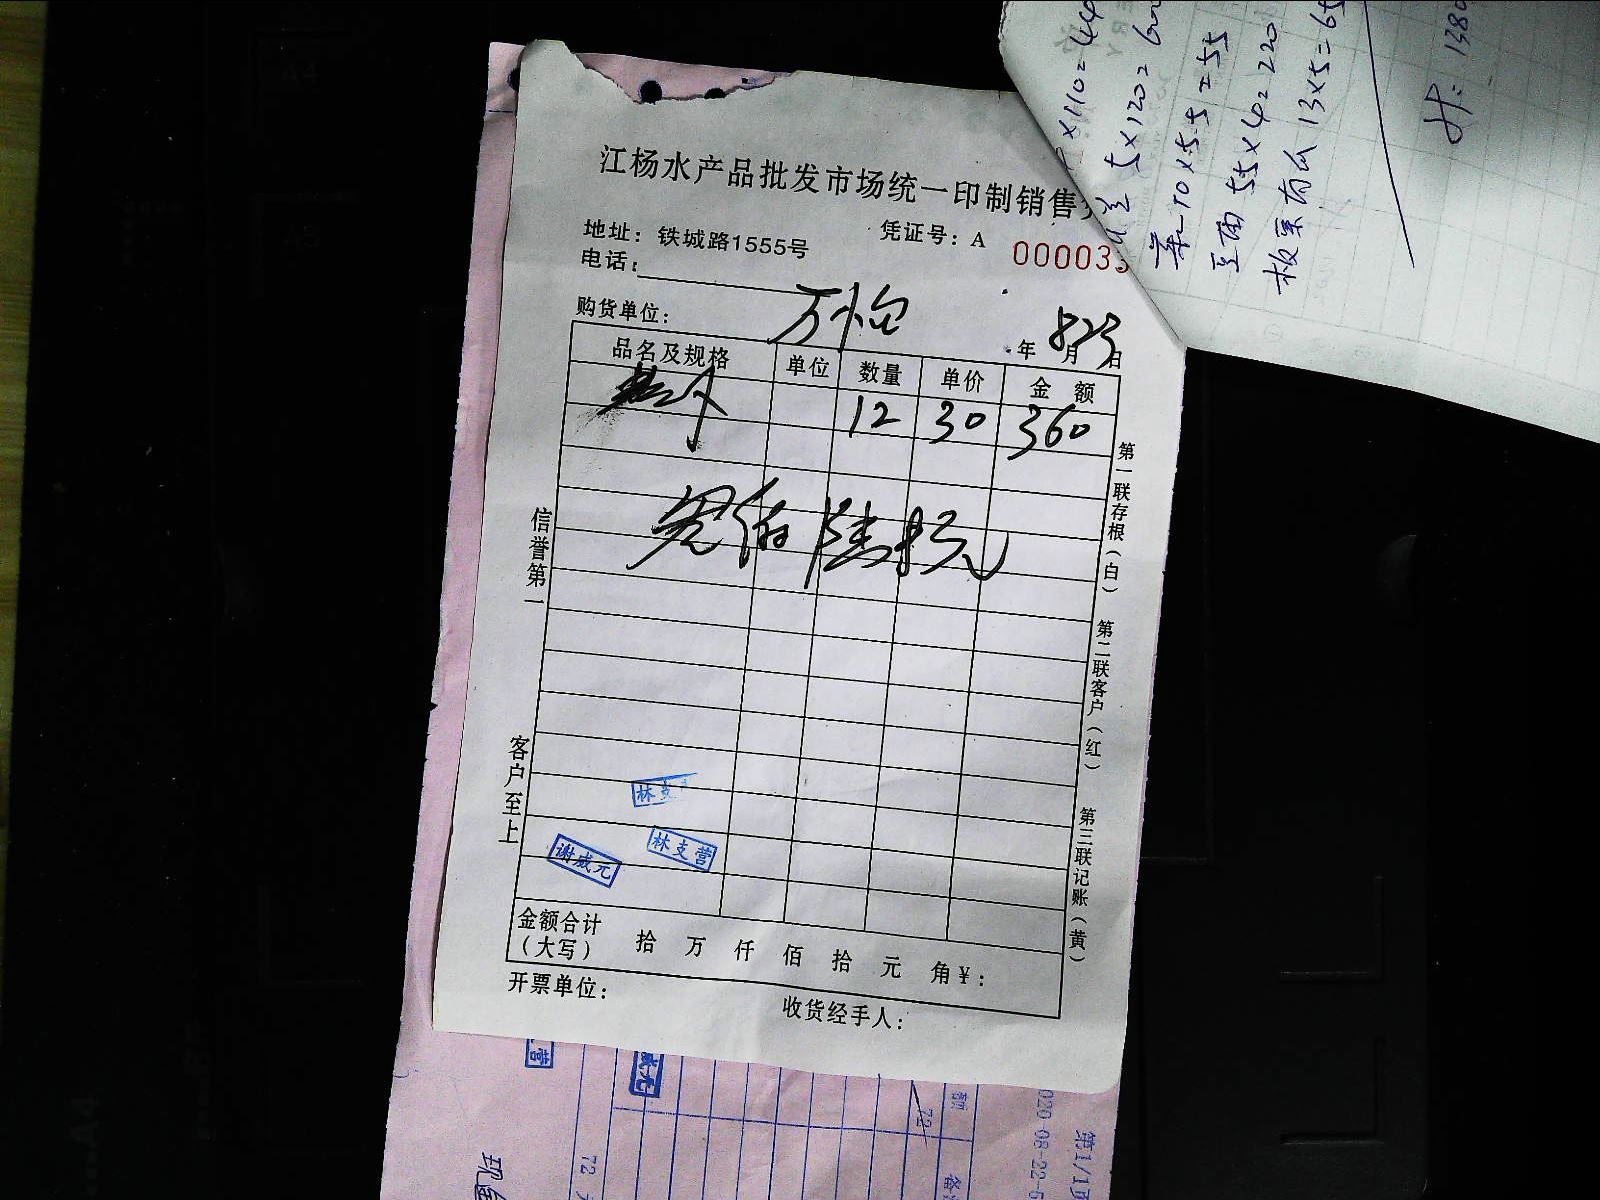 江杨水产品批发市场统一印制销售
地址：铁城路1555号
凭证号：A 000033
电话：
购货单位：
年 8月23日
品名及规格 单位 数量 单价 金额
12 30 360
叁佰陆拾元
信誉第一
客户至上
第一联存根（白）
第二联客户（红）
第三联记账（黄）
林支
林支营
谢威元
金额合计
（大写） 拾 万 仟 佰 拾 元 角 ¥：
开票单位：
收货经手人：
x110=44
5x120=600
10x5.5=55
55x4=220
13x5=65
计：1380
营
威元
额
72
72
020-08-22-
第1/1页